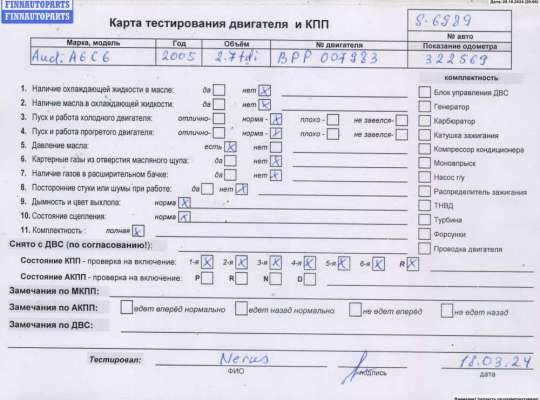 FINNAUTOPARTS
FINNAUTOPARTS
Карта тестирования двигателя и КПП
S-6989
№ авто
Марка, модель Год Объём № двигателя Показание одометра
Audi A6C6 2005 2.7tdi BPP 007983 322569
комплектность
1. Наличие охлаждающей жидкости в масле: да нет X
Блок управления ДВС
2. Наличие масла в охлаждающей жидкости: да нет X
Генератор
3. Пуск и работа холодного двигателя: отлично- норма - X плохо - не завелся-
Карбюратор
4. Пуск и работа прогретого двигателя: отлично- норма - X плохо - не завелся-
Катушка зажигания
5. Давление масла: есть X нет
Компрессор кондиционера
6. Картерные газы из отверстия масляного щупа: да нет X
Моновпрыск
7. Наличие газов в расширительном бачке: да нет X
Насос г/у
8. Посторонние стуки или шумы при работе: да нет X
Распределитель зажигания
9. Дымность и цвет выхлопа: норма X
ТНВД
10. Состояние сцепления: норма X
Турбина
11. Комплектность : полная X
Форсунки
Снято с ДВС (по согласованию!):
Проводка двигателя
Состояние КПП - проверка на включение: 1-я X 2-я X 3-я X 4-я X 5-я X 6-я X R X
Состояние АКПП - проверка на включение: P R N D
Замечания по МКПП:
Замечания по АКПП: едет вперёд нормально едет назад нормально не едет вперёд не едет назад
Замечания по ДВС:
Тестировал: 18.03.24
ФИО подпись дата